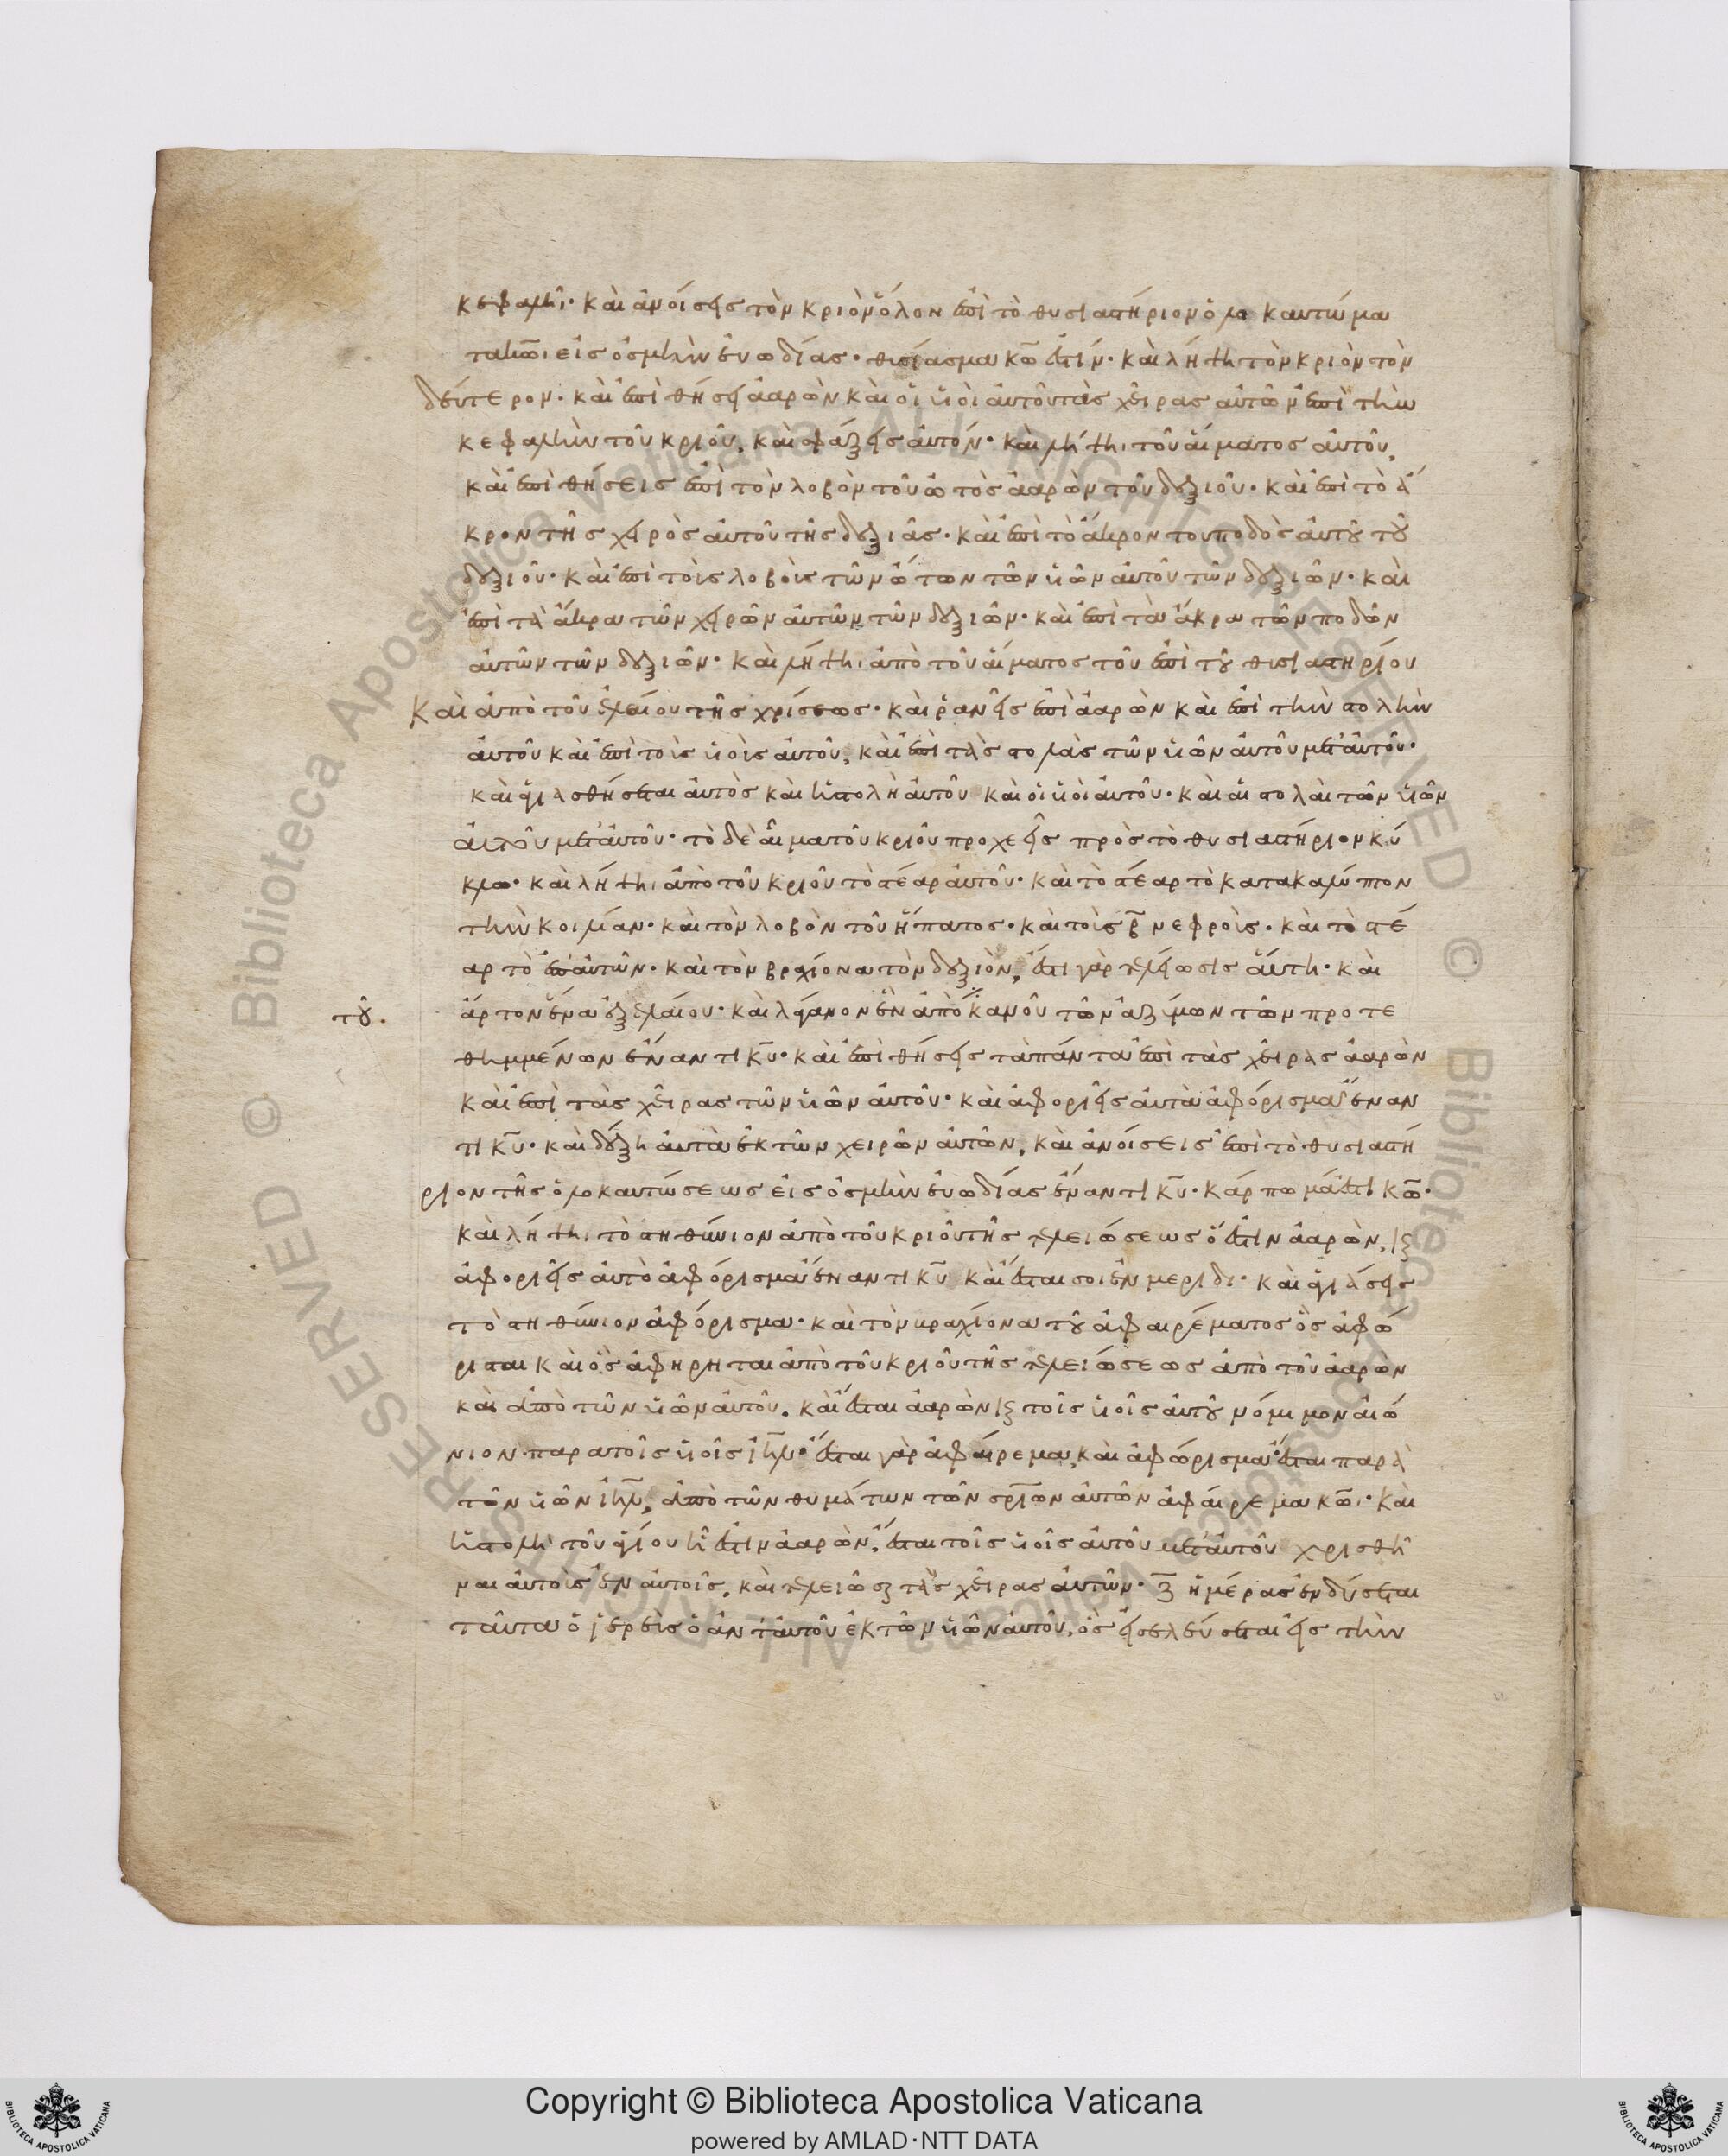 κεφαλῆι· καὶ ἀνοίσεις τὸν κριὸν ὅλον ἐπὶ τὸ θυσιαστήριον ὁλοκαυτώμα
τα κ̅ω̅ι εἰς ὀσμὴν εὐωδίας· θυσίασμα κ̅ω̅ ἐστίν· καὶ λήψη τὸν κριὸν τὸν
δεύτερον· καὶ ἐπιθήσει ἀαρὼν καὶ οἱ υἱοὶ αὐτοῦ τὰς χεῖρας αὐτῶν ἐπὶ τὴν
κεφαλὴν τοῦ κριοῦ, καὶ σφάξεις αὐτόν· καὶ λήψηι τοῦ αἵματος αὐτοῦ,
καὶ ἐπιθήσεις ἐπὶ τὸν λοβὸν τοῦ ὠτὸς ἀαρὼν τοῦ δεξιοῦ· καὶ ἐπὶ τὸ ἄ
κρον τῆς χειρὸς αὐτοῦ τῆς δεξιᾶς· καὶ ἐπὶ τὸ ἄκρον του ποδὸς αὐτοῦ τοῦ
δεξιοῦ· καὶ ἐπὶ τοὶς λοβοὶς τῶν ὤτων τῶν υἱῶν αὐτοῦ τῶν δεξιῶν· καὶ
ἐπὶ τὰ ἄκρα τῶν χειρῶν αὐτῶν τῶν δεξιῶν· καὶ ἐπὶ τὰ ἄκρα τῶν ποδῶν
αὐτῶν τῶν δεξιῶν· καὶ λήψηι ἀπὸ τοῦ αἵματος τοῦ ἐπὶ τοῦ θυσιαστηρίου
Καὶ ἀπὸ τοῦ ἐλαίου τῆς χρίσεως· καὶ ῥανεῖς ἐπὶ ἀαρὼν καὶ ἐπὶ τὴν στολὴν
αὐτοῦ καὶ ἐπὶ τοὶς υἱοὶς αὐτοῦ, καὶ ἐπὶ τὰς στολὰς τῶν υἱῶν αὐτοῦ μετ' αὐτοῦ·
καὶ ἁγιασθήσεται αὐτὸς καὶ ἡ στολὴ αὐτοῦ καὶ οἱ υἱοὶ αὐτοῦ· καὶ αἱ στολαὶ τῶν υἱῶν
αὐτοῦ μετ' αὐτοῦ· τὸ δὲ αἷμα τοῦ κριοῦ προχεεῖς πρὸς τὸ θυσιαστήριον κύ
κλω· καὶ λήψηι ἀπὸ τοῦ κριοῦ τὸ στέαρ αὐτοῦ· καὶ τὸ στέαρ τὸ κατακαλύπτον
τὴν κοιλίαν· καὶ τὸν λοβὸν τοῦ ἥπατος· καὶ τοὶς β̅ νεφροὶς· καὶ τὸ στέ
αρ τὸ ἐπ' αὐτῶν· καὶ τὸν βραχίονα τὸν δεξιὸν, ἔστι γὰρ τελείωσις αὕτη· καὶ
ἄρτον ἕνα ἐξ ἐλαίου· καὶ λάγανον ἓν ἀπὸ κανοῦ τῶν ἀζύμων τῶν προτε
τοῦ·
θημμένων ἔναντι κ̅υ̅· καὶ ἐπιθήσεις τὰ πάντα ἐπὶ τὰς χεῖρας ἀαρὼν
καὶ ἐπὶ τὰς χεῖρας τῶν υἱῶν αὐτοῦ· καὶ ἀφοριεῖς αὐτὰ ἀφόρισμα ἔναν
τι κ̅υ̅· καὶ δέξη αὐτὰ ἐκ τῶν χειρῶν αὐτῶν, καὶ ἀνοίσεις ἐπὶ τὸ θυσιαστή
ριον τῆς ὁλοκαυτώσεως εἰς ὀσμὴν εὐωδίας ἔναντι κ̅υ̅· κάρπωμά ἐστι κ̅ω̅·
καὶ λήψηι τὸ στηθύνιον ἀπὸ τοῦ κριοῦ τῆς τελειώσεως ὅ ἐστιν ἀαρὼν, κ̀
ἀφοριεῖς αὐτὸ ἀφόρισμα ἔναντι κ̅υ̅ καὶ ἔσται σοι ἐν μερίδι· καὶ ἁγιάσεις
τὸ στηθύνιον ἀφόρισμα· καὶ τὸν βραχίονα τοῦ ἀφαιρέματος ὃς ἀφώ
ρισται καὶ ὃς ἀφήρηται ἀπὸ τοῦ κριοῦ τῆς τελειώσεως ἀπὸ τοῦ ἀαρὼν
καὶ ἀπὸ τῶν υἱῶν αὐτοῦ. καὶ ἔσται ἀαρὼν κ̀ τοῖς υἱοῖς αὐτοῦ νόμιμον αἰώ
νιον παρα τοῖς υἱοῖς ι̅η̅λ̅· ἔσται γὰρ ἀφαίρεμα, καὶ ἀφώρισμα ἔσται παρὰ
τῶν υἱῶν ι̅η̅λ̅, ἀπὸ τῶν θυμάτων τῶν σ̅ρ̅ιων αὐτῶν ἀφαίρεμα κ̅ω̅ι· καὶ
ἡ στολὴ τοῦ ἁγίου ἥ ἐστιν ἀαρὼν, ἔσται τοῖς υἱοῖς αὐτοῦ μετ' αὐτοῦ χρισθῆ
ναι αὐτοὶς ἐν αὐτοῖς, καὶ τελειῶσαι τὰς χεῖρας αὐτῶν· ζ̅ ἡμέρας ἐνδύσεται
ταῦτα ὁ ἱερεὶς ὁ ἀντ' αὐτοῦ ἐκ τῶν υἱῶν αὐτοῦ, ὃς εἰσελεύσεται εἰς τὴν
Copyright © Biblioteca Apostolica Vaticana
powered by AMLAD·NTT DATA